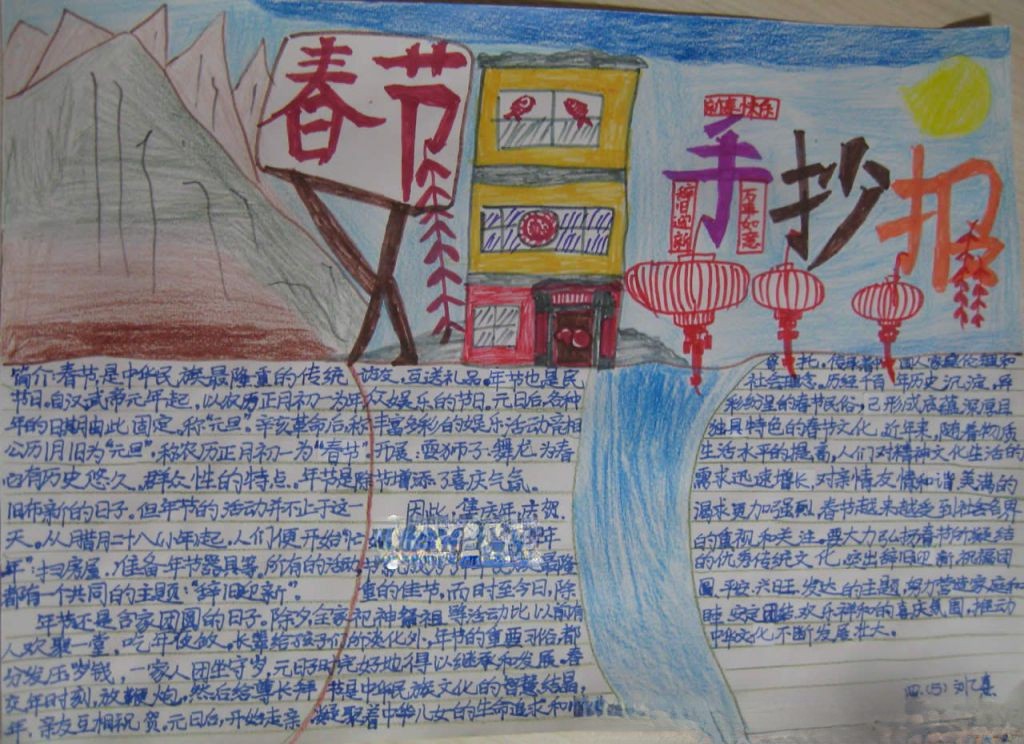 春节
手抄报
新年快乐
辞旧迎新
万事如意
简介:春节,是中华民族最隆重的传统
节日。自汉武帝元年起,以农历正月初一为年
年的日期由此固定。称“元旦”。辛亥革命后,称
公历1月1日为“元旦”,称农历正月初一为“春节”。
它有历史悠久、群众性的特点。年节是除
旧布新的日子。但年节的活动并不止于这一
天。从腊月二十八小年起,人们便开始“忙
年”:扫房屋、准备年节器具等。所有的活动
都有一个共同的主题:“辞旧迎新”。
年节还是合家团圆的日子。除夕,全家
人欢聚一堂,吃年夜饭。长辈给孩子们
分发压岁钱,一家人团坐守岁,元日子时
交年时刻,放鞭炮。然后给尊长拜
年,亲友互相祝贺。元日后,开始走亲
访友,互送礼品。年节也是民
众娱乐的节日。元日后,各种
丰富多彩的娱乐活动竞相
开展:耍狮子、舞龙为春
节增添了喜庆气氛。
因此,集庆年、庆贺
隆
重的佳节,而时至今日,除
祀神祭祖等活动比以前有
所淡化外,年节的重要习俗,都
完好地得以继承和发展。春
节是中华民族文化的智慧结晶,
凝聚着中华儿女的生命追求和
情感寄托,传承着中国人家庭伦理和
社会理念。历经千百年历史沉淀,异
彩纷呈的春节民俗,已形成底蕴深厚且
独具特色的春节文化。近年来,随着物质
生活水平的提高,人们对精神文化生活的
需求迅速增长,对亲情友情和谐美满的
渴求更加强烈,春节越来越受到社会各界
的重视和关注。要大力弘扬春节所凝结
的优秀传统文化,突出辞旧迎新、祝福团
圆、平安、兴旺发达的主题,努力营造家庭和
睦、安定团结、欢乐祥和的喜庆氛围,推动
中华文化不断发展壮大。
四.(5)